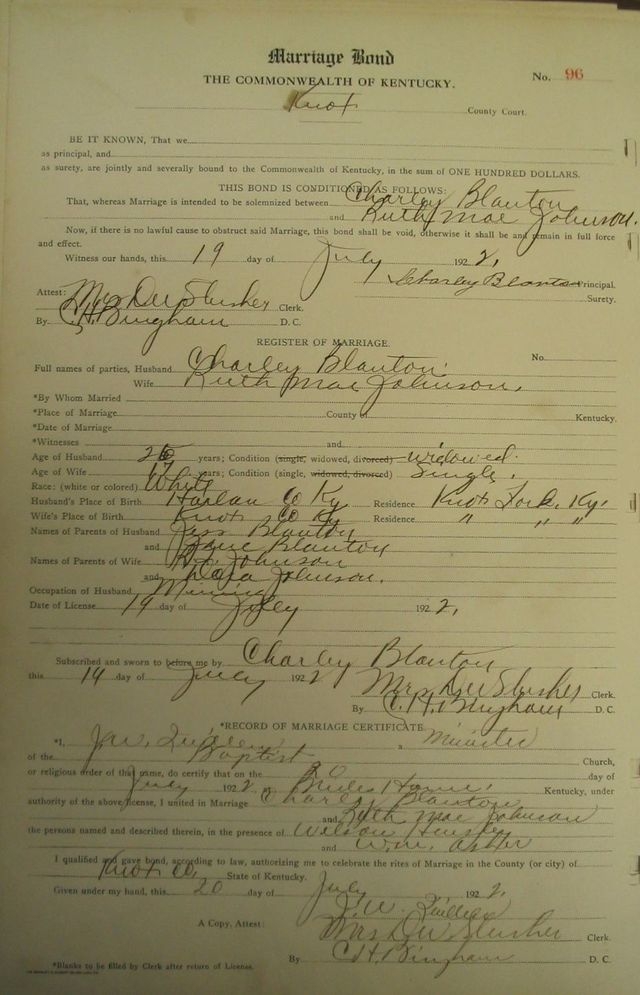 Marriage Bond
THE COMMONWEALTH OF KENTUCKY.
No. 96
Knox County Court.
BE IT KNOWN, That we
as principal, and
as surety, are jointly and severally bound to the Commonwealth of Kentucky, in the sum of ONE HUNDRED DOLLARS.
THIS BOND IS CONDITIONED AS FOLLOWS:
That, whereas Marriage is intended to be solemnized between Charley Blanton
and Ruth Mae Johnson.
Now, if there is no lawful cause to obstruct said Marriage, this bond shall be void, otherwise it shall be and remain in full force
and effect.
Witness our hands, this 19 day of July 1922,
Charley Blanton Principal.
Surety.
Attest: Mrs D W Slusher Clerk.
By C. H. Bingham D. C.
REGISTER OF MARRIAGE.
No.
Full names of parties, Husband Charley Blanton.
Wife Ruth Mae Johnson.
*By Whom Married
*Place of Marriage County of Kentucky.
*Date of Marriage
*Witnesses and
Age of Husband 26 years; Condition (single, widowed, divorced) widowed.
Age of Wife 17 years; Condition (single, widowed, divorced) Single.
Race: (white or colored) White
Husband's Place of Birth Harlan Co Ky Residence Knox Fork, Ky.
Wife's Place of Birth Knox Co Ky Residence " " "
Names of Parents of Husband Jess Blanton
and Jane Blanton
Names of Parents of Wife Johnson
and Johnson.
Occupation of Husband Mining
Date of License 19 day of July 1922,
Subscribed and sworn to before me by Charley Blanton
this 19 day of July 1922
Mrs D W Slusher Clerk.
By C. H. Bingham D. C.
*RECORD OF MARRIAGE CERTIFICATE
*I, J. W. a Minister
of the Baptist Church,
or religious order of this name, do certify that on the 20 day of
July 1922, at Brides Home, Kentucky, under
authority of the above license, I united in Marriage Charley Blanton
and Ruth Mae Johnson
the persons named and described therein, in the presence of Wilson Hensley
and W. M. Asher
I qualified and gave bond, according to law, authorizing me to celebrate the rites of Marriage in the County (or city) of
Knox Co, State of Kentucky.
Given under my hand, this 20 day of July 1922,
J. W.
A Copy, Attest: Mrs D W Slusher Clerk.
By C. H. Bingham D. C.
*Blanks to be filled by Clerk after return of License.